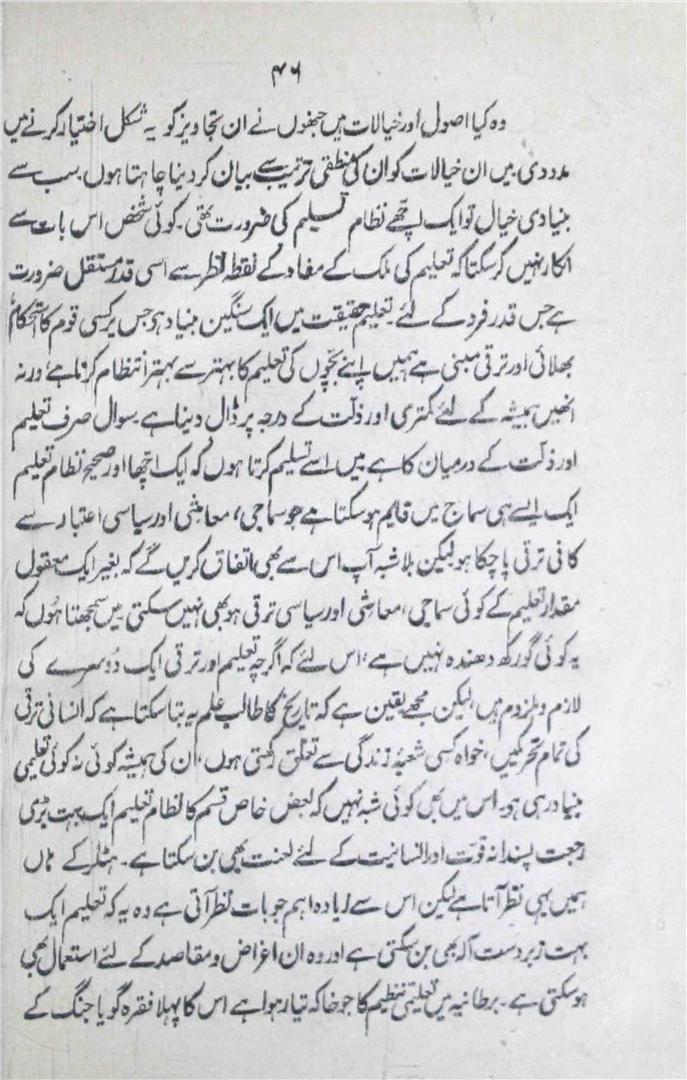 ۴۶
وہ کیا اصول اور خیالات ہیں جنھوں نے ان تجاویز کو یہ شکل اختیار کرنے میں
مدد دی۔ میں ان خیالات کو ان کی منطقی ترتیب سے بیان کر دینا چاہتا ہوں۔ سب سے
بنیادی خیال تو ایک اچھے نظام تعلیم کی ضرورت تھی۔ کوئی شخص اس بات سے
انکار نہیں کرسکتا کہ تعلیم کی ملک کے مفاد کے نقطہ نظر سے اسی قدر مستقل ضرورت
ہے جس قدر فرد کے لئے۔ تعلیم حقیقت میں ایک سنگین بنیاد ہو جس پر کسی قوم کا استحکام،
بھلائی اور ترقی مبنی ہے ہمیں اپنے بچوں کی تعلیم کا بہتر سے بہتر انتظام کرنا ہے ورنہ
انھیں ہمیشہ کے لئے کمتری اور ذلت کے درجہ پر ڈال دینا ہے۔ سوال صرف تعلیم
اور ذلت کے درمیان کا ہے میں اسے تسلیم کرتا ہوں کہ ایک اچھا اور صحیح نظام تعلیم
ایک ایسے ہی سماج میں قایم ہوسکتا ہے جو سماجی، معاشی اور سیاسی اعتبار سے
کافی ترقی پا چکا ہو لیکن بلا شبہ آپ اس سے بھی اتفاق کریں گے کہ بغیر ایک معقول
مقدار تعلیم کے کوئی سماجی، معاشی اور سیاسی ترقی ہو بھی نہیں سکتی۔ میں سمجھتا ہوں کہ
یہ کوئی گورکھ دھندہ نہیں ہے، اس لئے کہ اگرچہ تعلیم اور ترقی ایک دوسرے کی
لازم و ملزوم ہیں، لیکن مجھے یقین ہے کہ تاریخ کا طالب علم یہ بتا سکتا ہے کہ انسانی ترقی
کی تمام تحریکیں، خواہ کسی شعبۂ زندگی سے تعلق رکھتی ہوں، ان کی ہمیشہ کوئی نہ کوئی تعلیمی
بنیاد رہی ہو۔ اس میں بھی کوئی شبہ نہیں کہ بعض خاص قسم کا نظام تعلیم ایک بہت بڑی
رجعت پسندانہ قوت اور انسانیت کے لئے لعنت بھی بن سکتا ہے۔ ہٹلر کے ہاں
ہمیں یہی نظر آتا ہے لیکن اس سے زیادہ اہم جو بات نظر آتی ہے وہ یہ کہ تعلیم ایک
بہت زبردست آلہ بھی بن سکتی ہے اور وہ ان اغراض و مقاصد کے لئے استعمال بھی
ہوسکتی ہے۔ برطانیہ میں تعلیمی تنظیم کا جو خاکہ تیار ہوا ہے اس کا پہلا فقرہ گویا جنگ کے